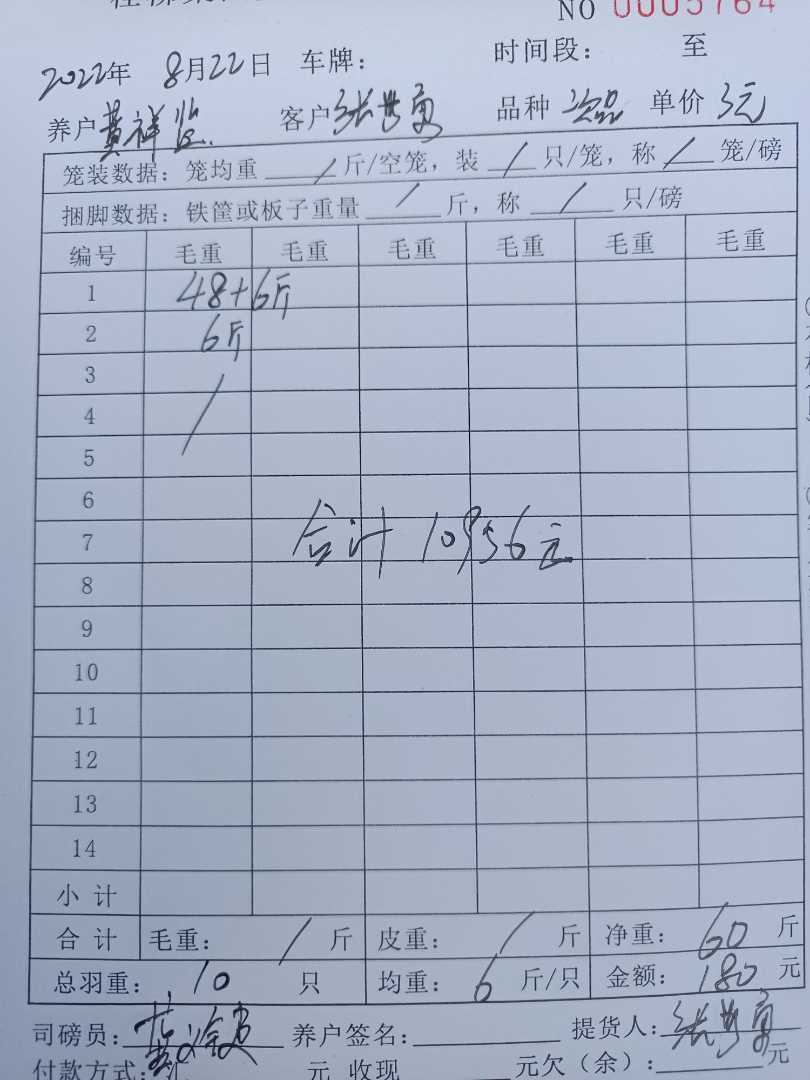 NO 0005764
2022年 8月22日 车牌： 时间段： 至
养户 黄祥 客户 张 品种 次品 单价 3元
笼装数据：笼均重 / 斤/空笼，装 / 只/笼，称 / 笼/磅
捆脚数据：铁筐或板子重量 / 斤，称 / 只/磅
编号 毛重 毛重 毛重 毛重 毛重 毛重
1 48+6斤
2 6斤
3 /
4
5
6
7 合计 10956元
8
9
10
11
12
13
14
小 计
合 计 毛重： / 斤 皮重： / 斤 净重： 60 斤
总羽重： 10 只 均重： 6 斤/只 金额： 180 元
司磅员： 养户签名： 提货人： 张
付款方式： 元 收现 元欠（余）： 元